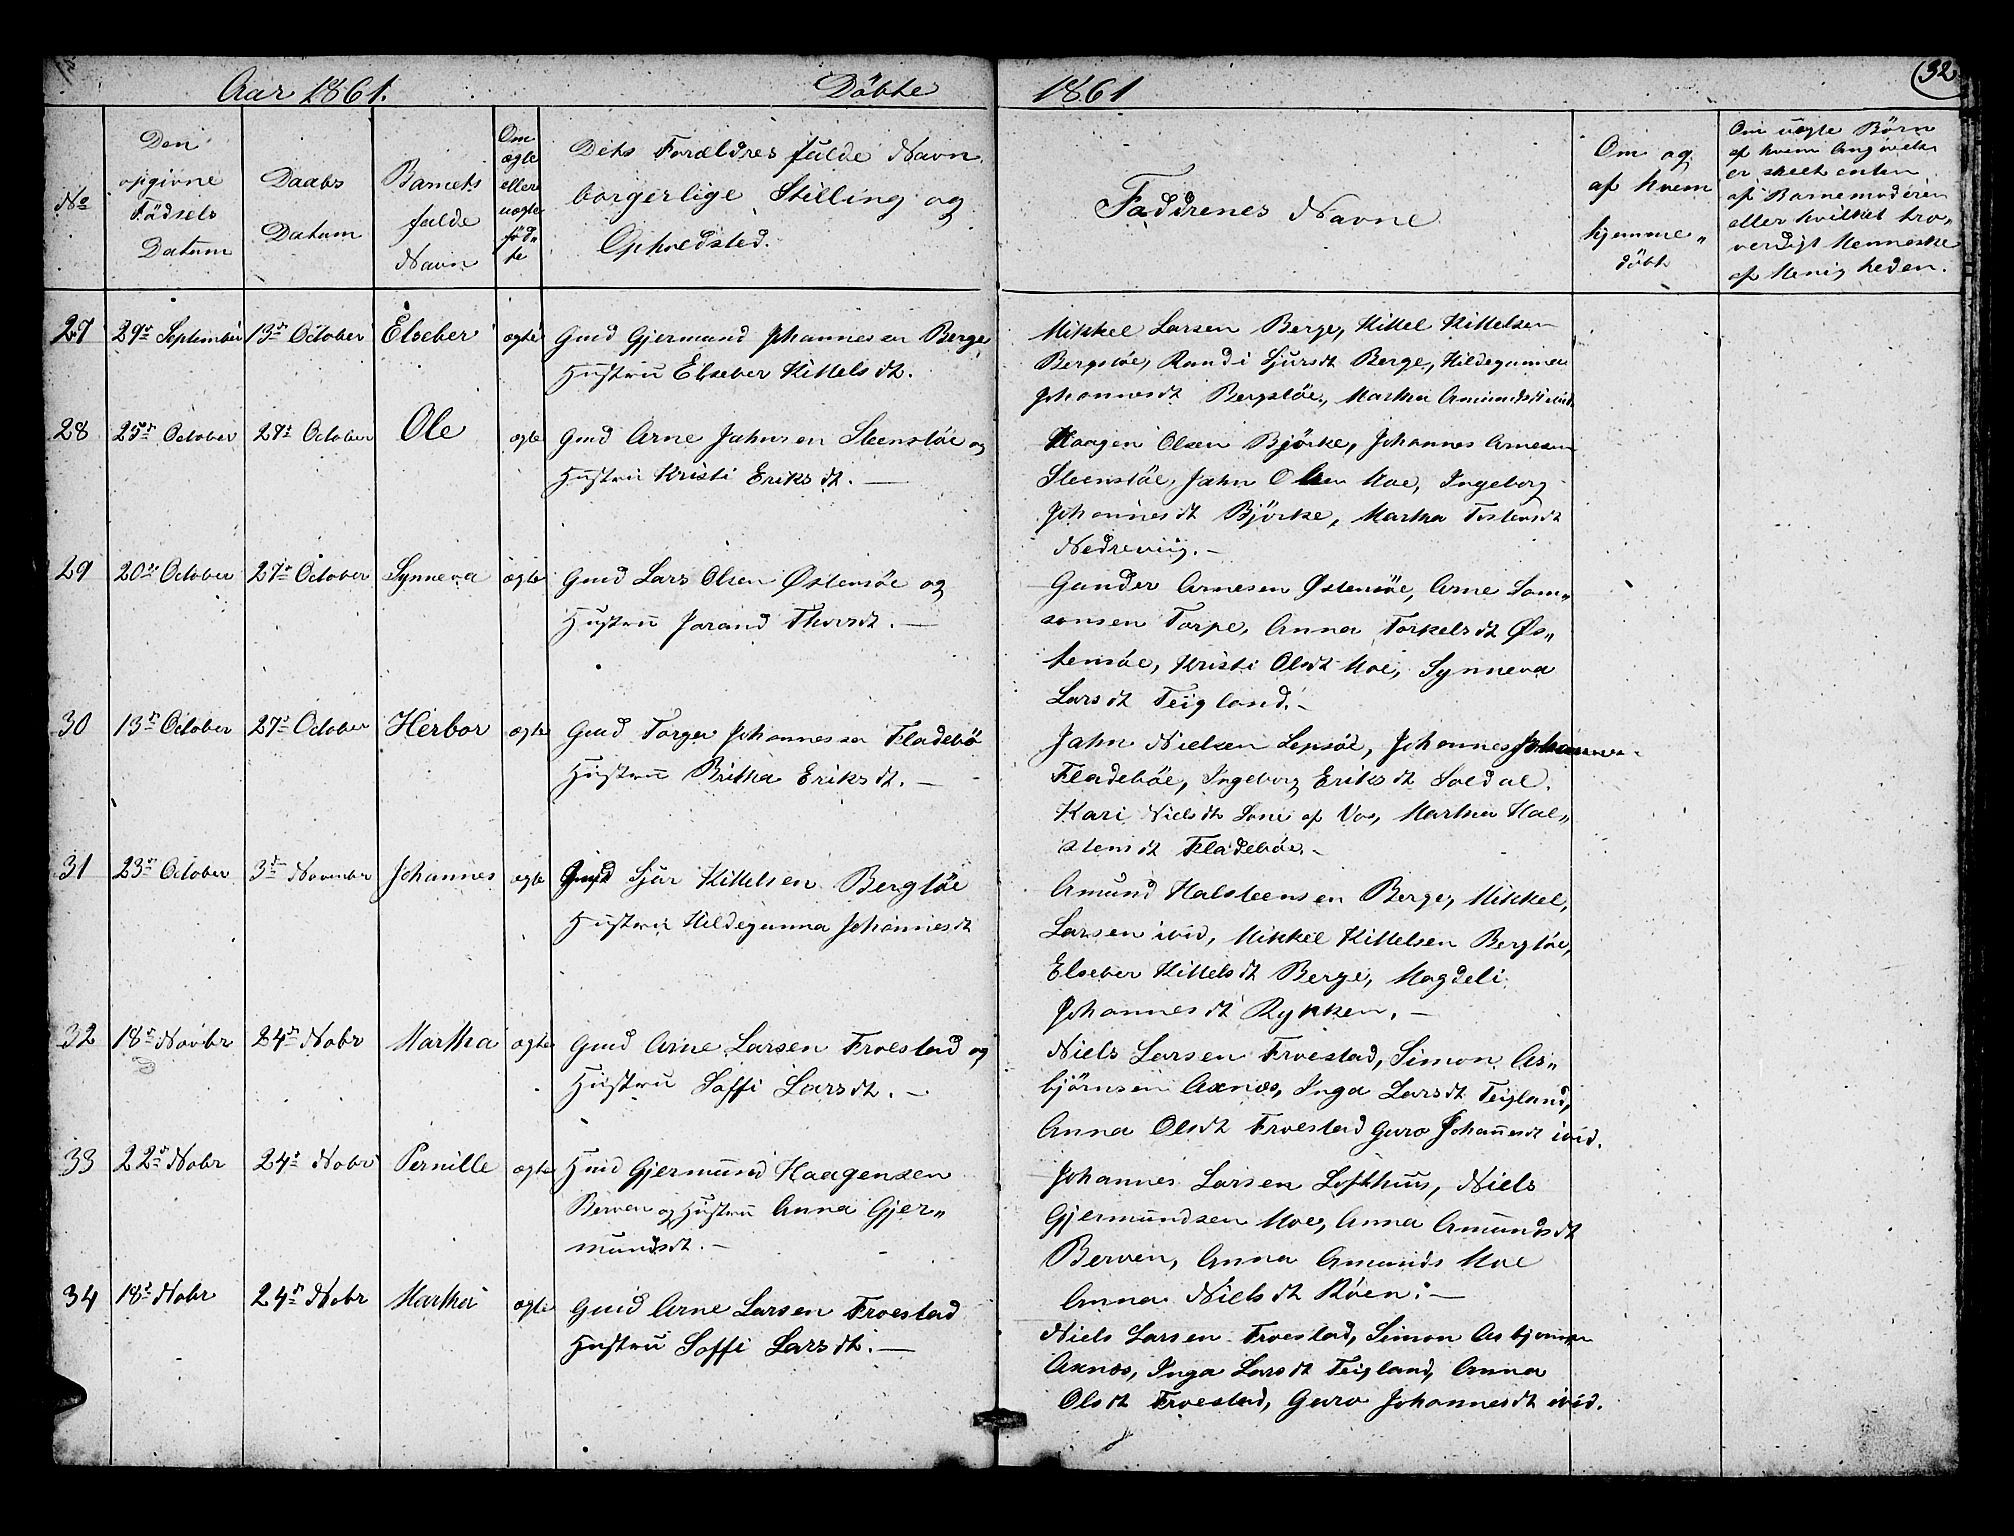 Aar 1861. Döbte 1861 32
No
Den opgivne Födsels Datum
Daabs Datum
Barnets fulde Navn
Om ægte eller uægte föd„ te
Dets Forældres fulde Navn,
borgerlige Stilling og
Opholdsted.
Faddrenes Navne
Om og af hvem hjemme„ döbt
Om uægte Börn
af hvem Angivelse
er skeet enten
af Barnemoderen
eller hvilket tro„
verdigt Menneske
af Menigheden.
27 29de September 13de October Elseber ægte Gmd Gjermund Johannesen Berge
Hustru Elseber Kittelsdt.
Mikkel Larsen Berge, Kittel Kittelsen
Bergstöe, Randi Sjursdt Berge, Hildegunna
Johannesdt Bergstöe, Martha Amundsdt ibid.
28 25de October 27de October Ole ægte Gmd Arne Jahnsen Steenstöe og
Hustru Kristi Eriksdt. —
Haagen Olsen Björke, Johannes Arnesen
Steenstöe, Jahn Olsen Moe, Ingeborg
Johannesdt Björke, Martha Tostensdt
Nedreviig. —
29 20de October 27de October Synneva ægte Gmd Lars Olsen Østensöe og
Hustru Jorand Thorsdt. —
Gunder Arnesen Østensöe, Arne Sam„
sonsen Torpe, Anna Torkelsdt Øs„
tensöe, Kristi Olsdt Moe, Synneva
Larsdt Teigland. —
30 13de October 27de October Herbor ægte Gmd Torger Johannessen Fladebö
Hustru Britha Eriksdt. —
Jahn Nielsen Lepsöe, Johannes Johannes
Fladeböe, Ingeborg Eriksdt Soldal.
Kari Nielsdt Sone af Vos, Martha Hal„
stensdt Fladeböe. —
31 23de October 3de November Johannes ægte Gmd Sjur Kittelsen Bergtöe
Hustru Hildegunna Johannesdt
Amund Halsteensen Berge, Mikkel,
Larsen ibid, Mikkel Kittelsen Bergtöe,
Elseber Kittelsdt Berge, Magdeli
Johannesdt Rykken. —
32 18de Novbr 24de Nobr Martha ægte Gmd Arne Larsen Froestad og
Hustru Soffi Larsdt. —
Niels Larsen Froestad, Simon As„
björnsen Axnæs, Inga Larsdt Teigland,
Anna Olsdt Froestad Guro Johannesdt ibid.
33 22de Nobr 24de Nobr Pernille ægte Hmd Gjermund Haagensen
Berven og Hustru Anna Gjer„
mundsdt. —
Johannes Larsen Lofthuus, Niels
Gjermundsen Moe, Anna Amundsdt
Berven, Anna Amunds Moe
Anna Nielsdt Röen. —
34 18de Nobr 24de Nobr Martha ægte Gmd Arne Larsen Froestad
Hustru Soffi Larsdt. —
Niels Larsen Froestad, Simon Asbjornsen
Axnæs, Inga Larsdt Teigland, Anna
Olsdt Froestad, Guro Johannesdt ibid.